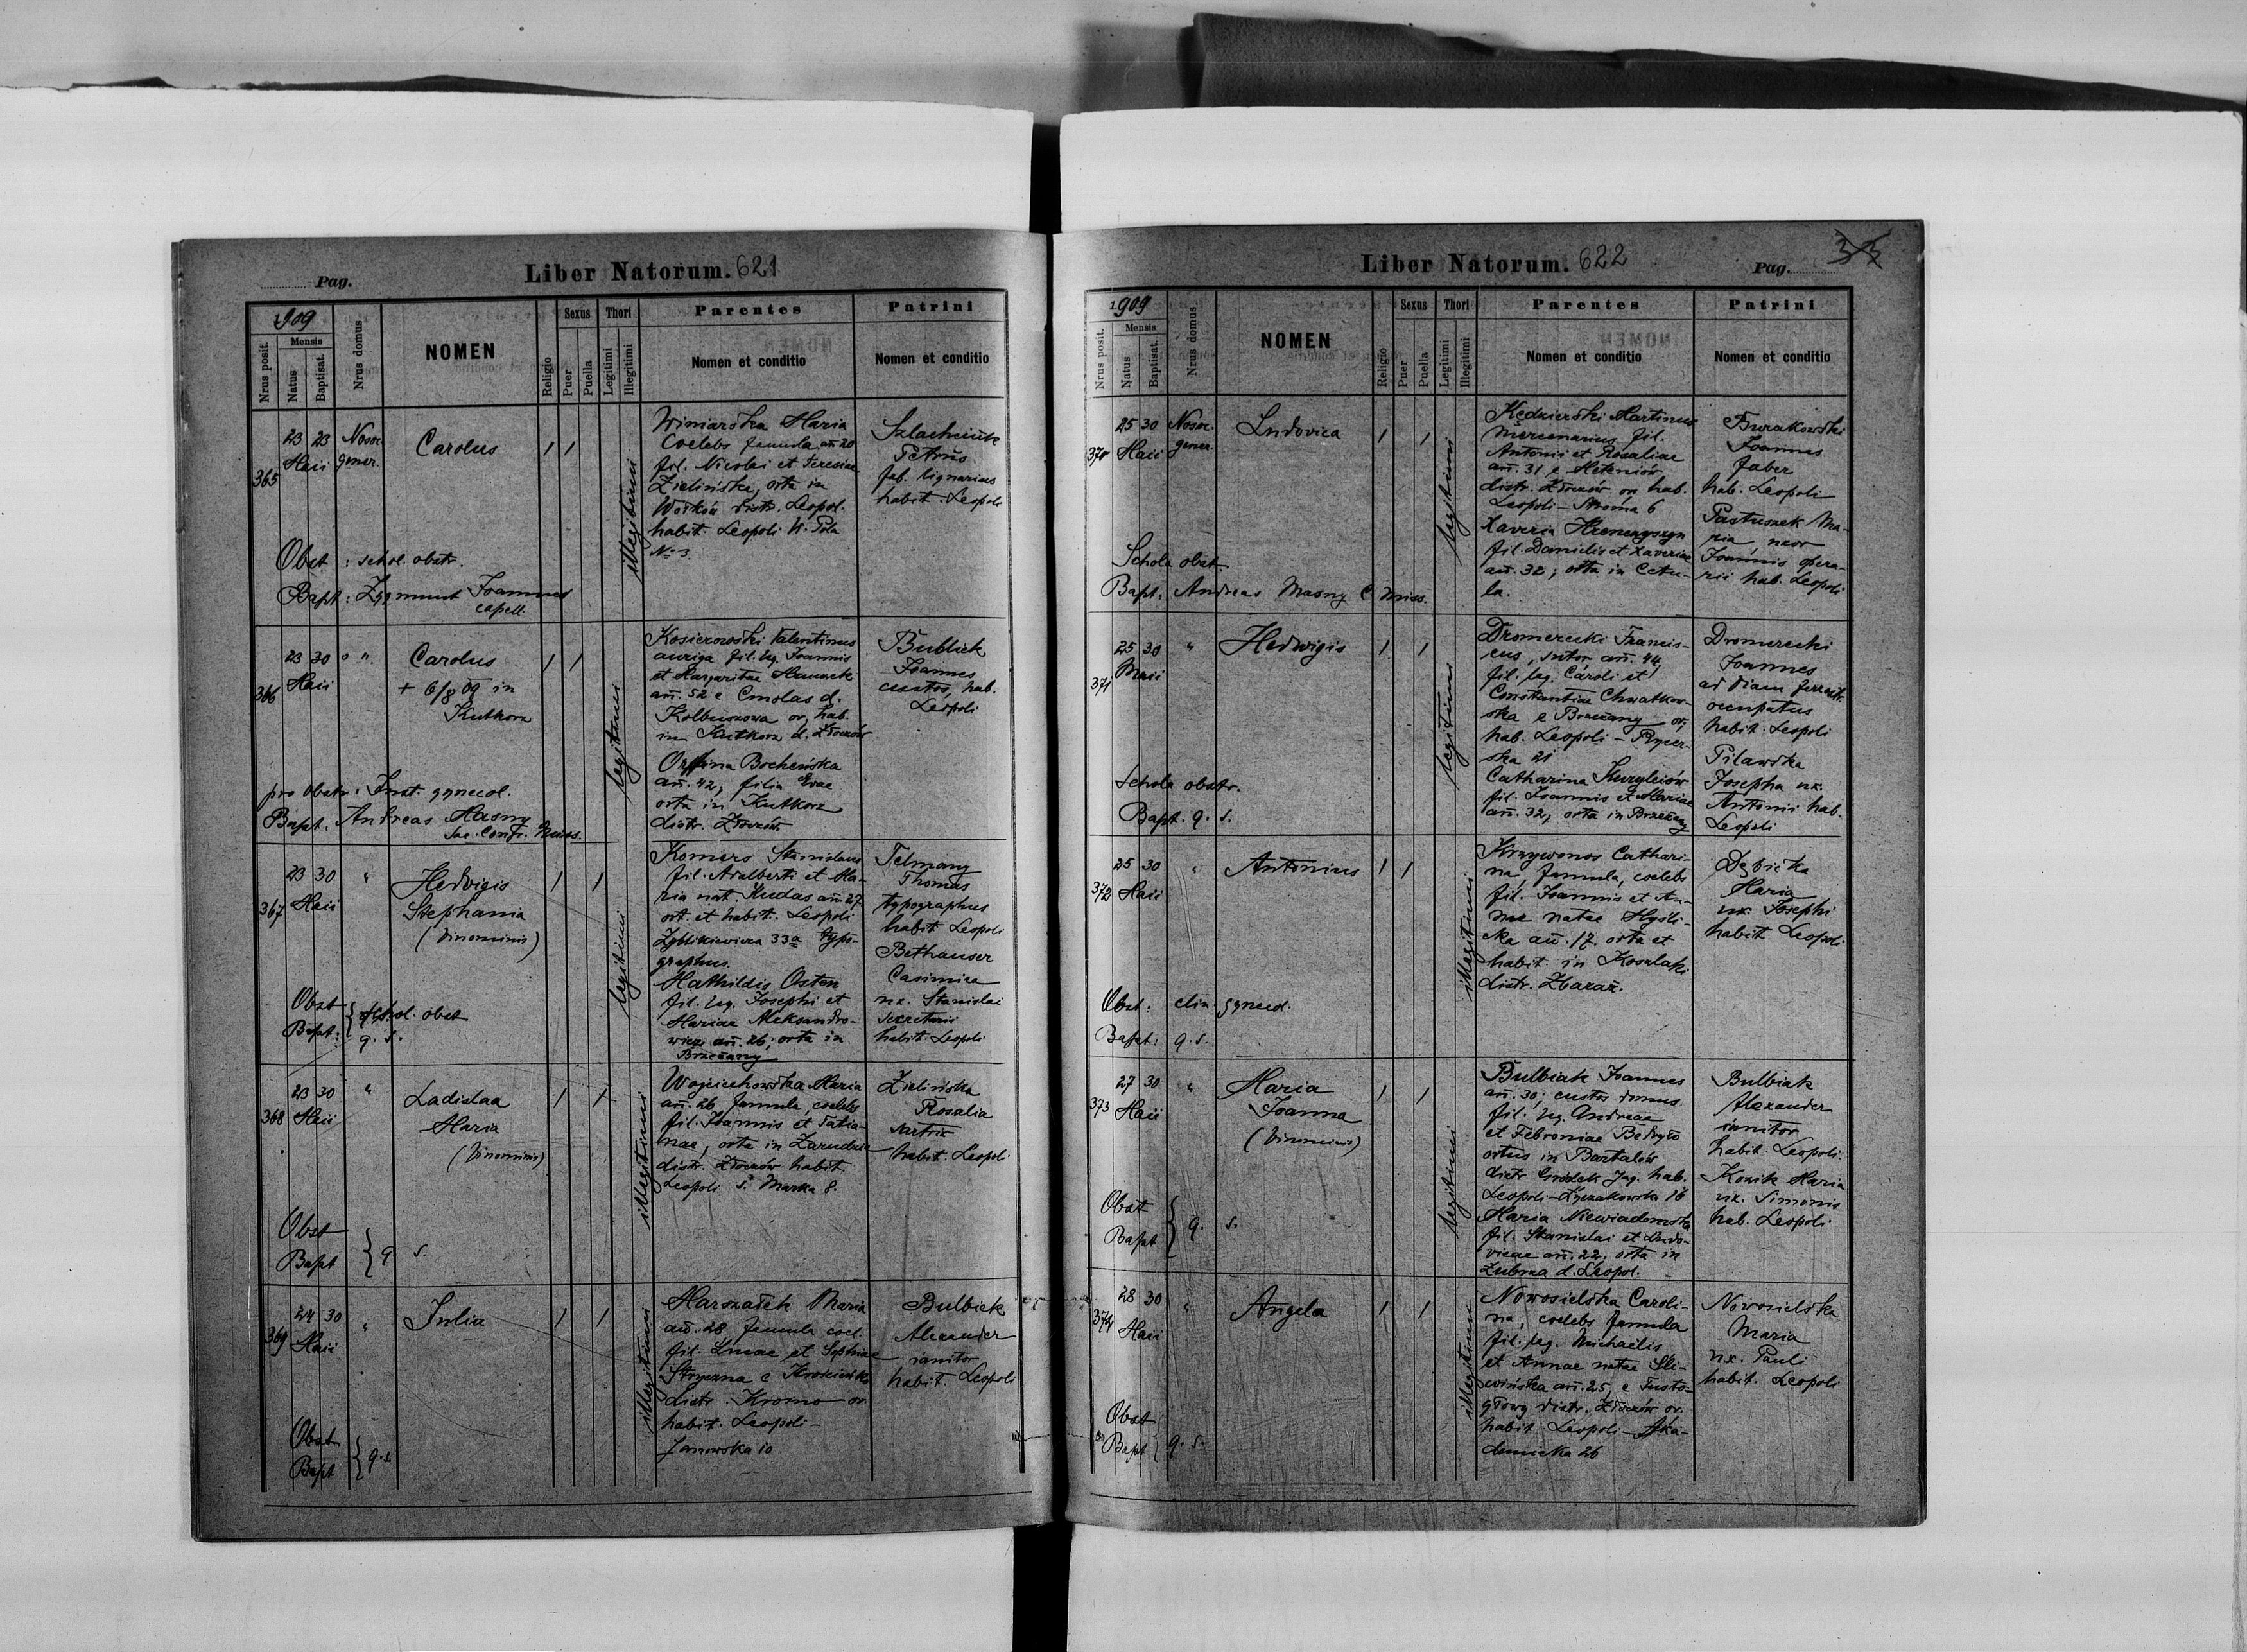 Pag.
Liber Natorum. 621
1909
Nrus posit.
Mensis
Natus
Baptisat.
Nrus domus
NOMEN
Religio
Sexus
Puer
Puella
Thori
Legitimi
Illegitimi
Parentes
Nomen et conditio
Patrini
Nomen et conditio
365
23 23
Maii
Nosoc.
gener.
Carolus
illegitimi
Winiarska Maria
coelebs famula, an 20
fil. Nicolai et Teresiae
Zielińska, orta in
Wołków distr. Leopol.
habit. Leopoli W. Pola
No 3.
Petrus
fab. lignarius
habit. Leopoli
Obst : schol. obstr.
Bapt : Zygmunt Joannes
capell.
366
23 30
Maii
Carolus
+ 6/8 09 in
Kutkorz
legitimi
Kosierowski Valentinus
auriga fil. leg. Joannis
et Margaritae
an. 52 e Cmolas d.
Kolbuszowa or, hab.
in Kutkorz d. Złoczów
Bocheńska
an. 42, filia Evae
orta in Kutkorz
distr. Złoczów
Bubliek
Joannes
custos, hab.
Leopoli
pro obstr : Inst. gynecol.
Bapt. Andreas Masny
Sac. Congr. Miss.
367
23 30
Maii
"
Hedvigis
Stephania
(binominis)
legitimi
Komers Stanislaus
fil. Adalberti et Ma-
ria nat. Kudas an 27
ort. et habit. Leopoli
Zyblikiewicza 33a typo-
graphus.
Mathildis Osten
fil. leg. Josephi et
Mariae Aleksandro-
wicz an. 26, orta in
Brzeżany
Telmany
Thomas
typographus
habit Leopoli
Bethauser
Casimira
ux. Stanislai
secretarii
habit. Leopoli
Obst
Bapt :
schol. obst
q. s.
368
23 30
Maii
"
Ladislaa
Maria
(binominis)
illegitimi
Wojciechowska Maria
an. 26 famula, coelebs
fil. Joannis et Tatia-
nae, orta in Zarudzie
distr. Złoczów habit.
Leopoli s. Marka 8.
Zielińska
Rosalia
sartrix
habit. Leopoli
Obst
Bapt
q s.
369
24 30
Maii
"
Julia
illegitimi
Marszałek Maria
an. 28 famula coel.
fil. Lucae et Sophiae
Stryczna e
distr. Krosno or.
habit. Leopoli -
Janowska 10
Bulbiek
Alexander
ianitor
habit. Leopoli
Obst
Bapt
q. s.
Liber Natorum. 622
Pag.
33
1909
Nrus posit.
Mensis
Natus
Baptisat.
Nrus domus
NOMEN
Religio
Sexus
Puer
Puella
Thori
Legitimi
Illegitimi
Parentes
Nomen et conditio
Patrini
Nomen et conditio
370
25 30
Maii
Nosoc.
gener.
Ludovica
legitimi
Kędzierski Martinus
mercenarius fil.
Antonii et Rosaliae
an. 31 e Meteniów
distr. Złoczów or. hab.
Leopoli - Stroma 6
Xaveria
fil. Danielis et Xaveriae
an. 32, orta in Cetu-
la.
Burakowski
Joannes
faber
hab. Leopoli
Pastuszek Ma-
ria uxor
Joannis opera-
rii hab. Leopoli
Schola obst.
Bapt : Andreas Masny C. Miss.
371
25 30
Maii
"
Hedwigis
legitimi
Dromerecki Francis-
cus, sutor an. 44,
fil. leg. Caroli et
Constantiae Chwatkow-
ska e Brzeżany or,
hab. Leopoli - Rycer-
ska 21
Catharina Kuryleiów
fil. Joannis et Mariae
an. 32, orta in Brzeżany
Dromerecki
Joannes
ad viam ferreatr.
occupatus
habit. Leopoli
Pilawska
Josepha ux.
Antonii hab.
Leopoli
Schola obstr.
Bapt. q. s.
372
25 30
Maii
"
Antonius
illegitimi
Krzywonos Cathari-
na famula, coelebs
fil. Joannis et An-
nae natae Mysli-
cka an. 17. orta et
habit in Koszlaki
distr. Zbaraż.
Dębicka
Maria
ux. Josephi
habit Leopoli
Obst : clin. gynecol.
Bapt : q. s.
373
27 30
Maii
"
Maria
Joanna
(binominis)
legitimi
Bulbiak Joannes
an. 30, custos domus
fil. leg. Andreae
et Febroniae Bedryło
ortus in Bartatów
distr Grodek Jag. hab.
Leopoli - Łyczakowska 16
Maria Niewiadomska
fil. Stanislai et Ludo-
vicae an. 22. orta in
Zubrza d. Leopol.
Bulbiak
Alexander
ianitor
habit. Leopoli.
Kozik Maria
ux. Simonis
hab. Leopoli
Obst
Bapt
q. s.
374
28 30
Maii
"
Angela
illegitimi
Nowosielska Caroli-
na, coelebs famula
fil. leg. Michaelis
et Annae natae Sli-
wińska an. 25, e Tusto-
głowy distr. Złoczów or.
habit Leopoli - Aka-
demicka 26
Nowosielska
Maria
ux. Pauli
habit. Leopoli
Obst
Bapt
q. s.